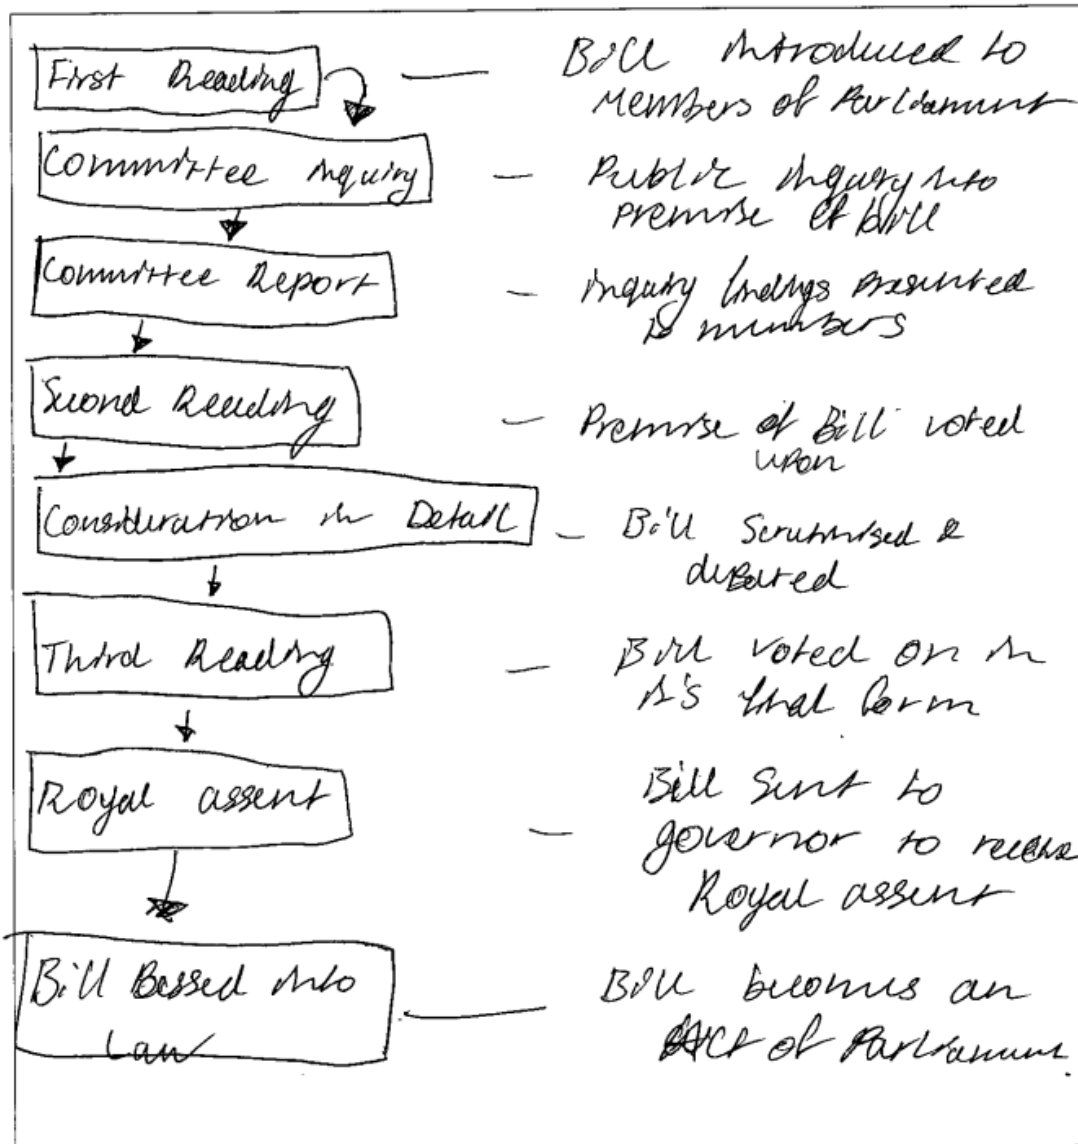 First Reading
Bill introduced to
Members of Parliament
Committee inquiry
Public inquiry into
premise of bill
Committee Report
inquiry findings presented
to members
Second Reading
Premise of Bill voted
upon
Consideration in Detail
Bill Scrutinised &
debated
Third Reading
Bill voted on in
it's final form
Royal assent
Bill Sent to
governor to receive
Royal assent
Bill Passed into
Law
Bill becomes an
Act of Parliament